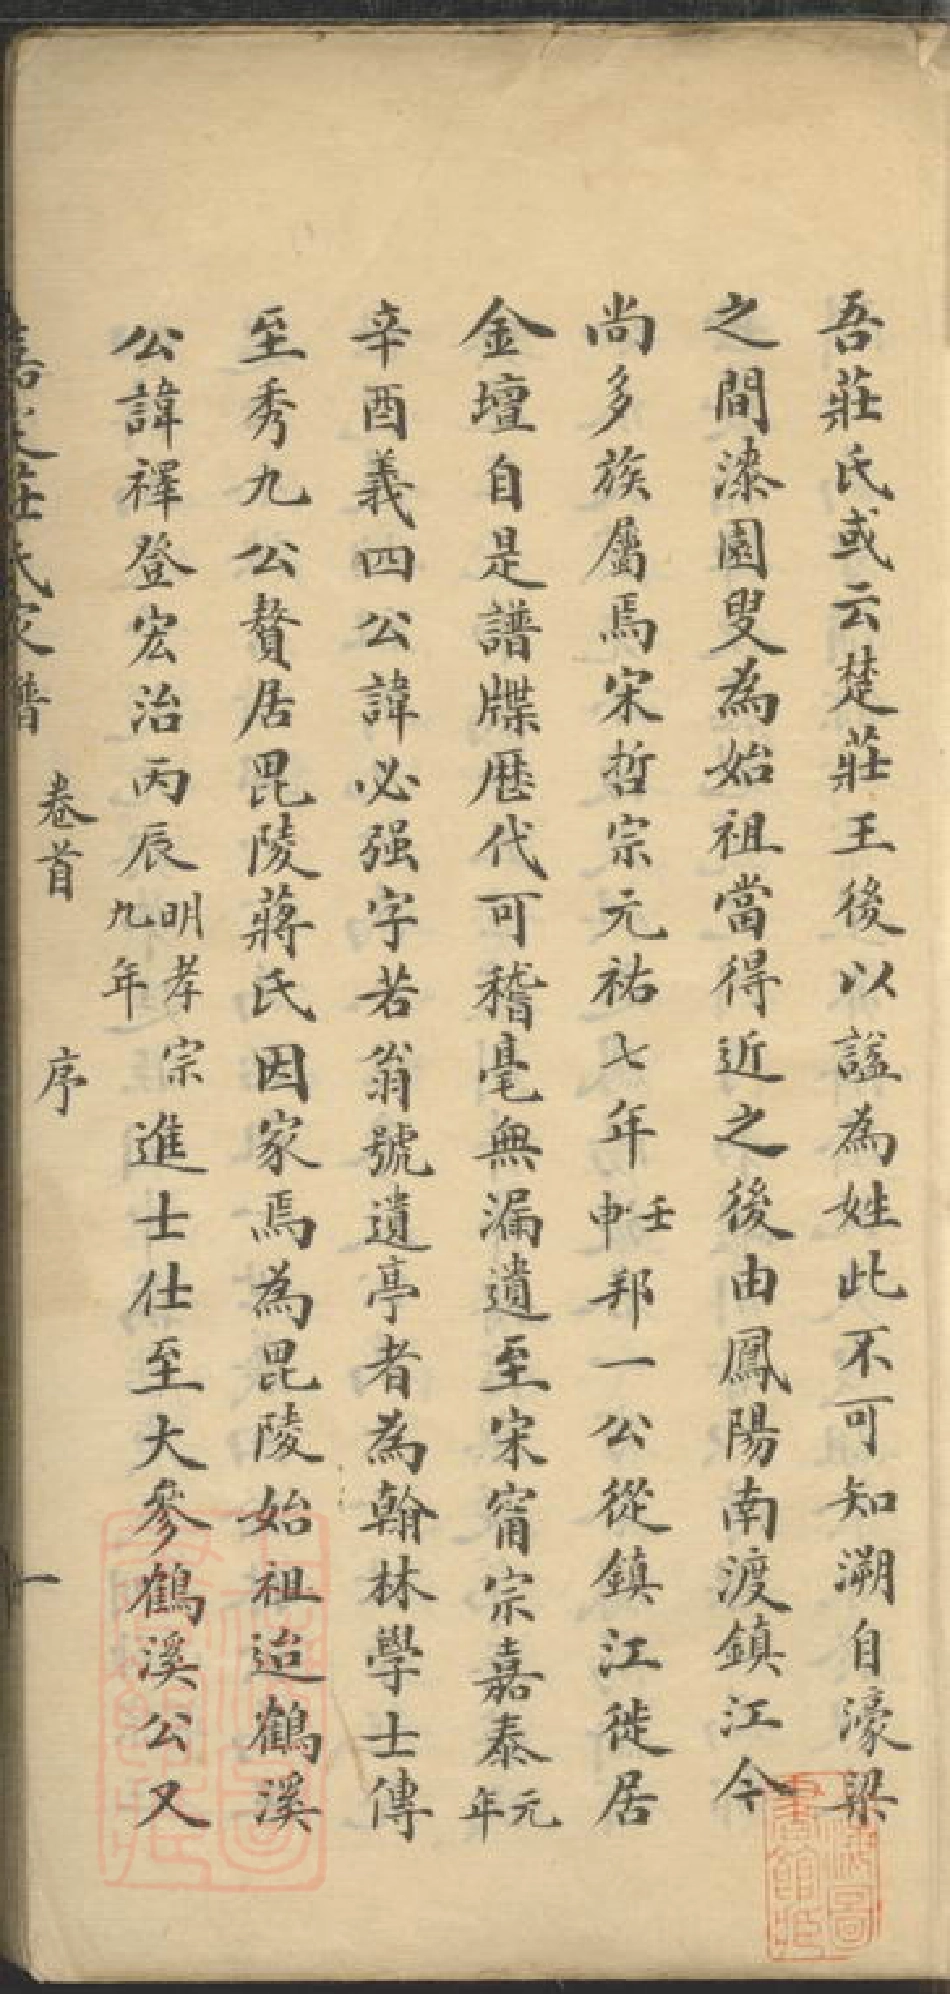 吾莊氏或云楚莊王後以謚為姓此不可知溯自濠梁
之間漆園叟為始祖當得近之後由鳳陽南渡鎮江今
尚多族屬焉宋哲宗元祐七年壬申邦一公從鎮江徙居
金壇自是譜牒歷代可稽毫無漏遺至宋甯宗嘉泰元年
辛酉義四公諱必强字若翁號遺亭者為翰林學士傳
至秀九公贅居毘陵蔣氏因家焉為毘陵始祖迨鶴溪
公諱襗登宏治丙辰明孝宗九年進士仕至大參鶴溪公又
莊氏家譜 卷首 序 一
圖書館藏